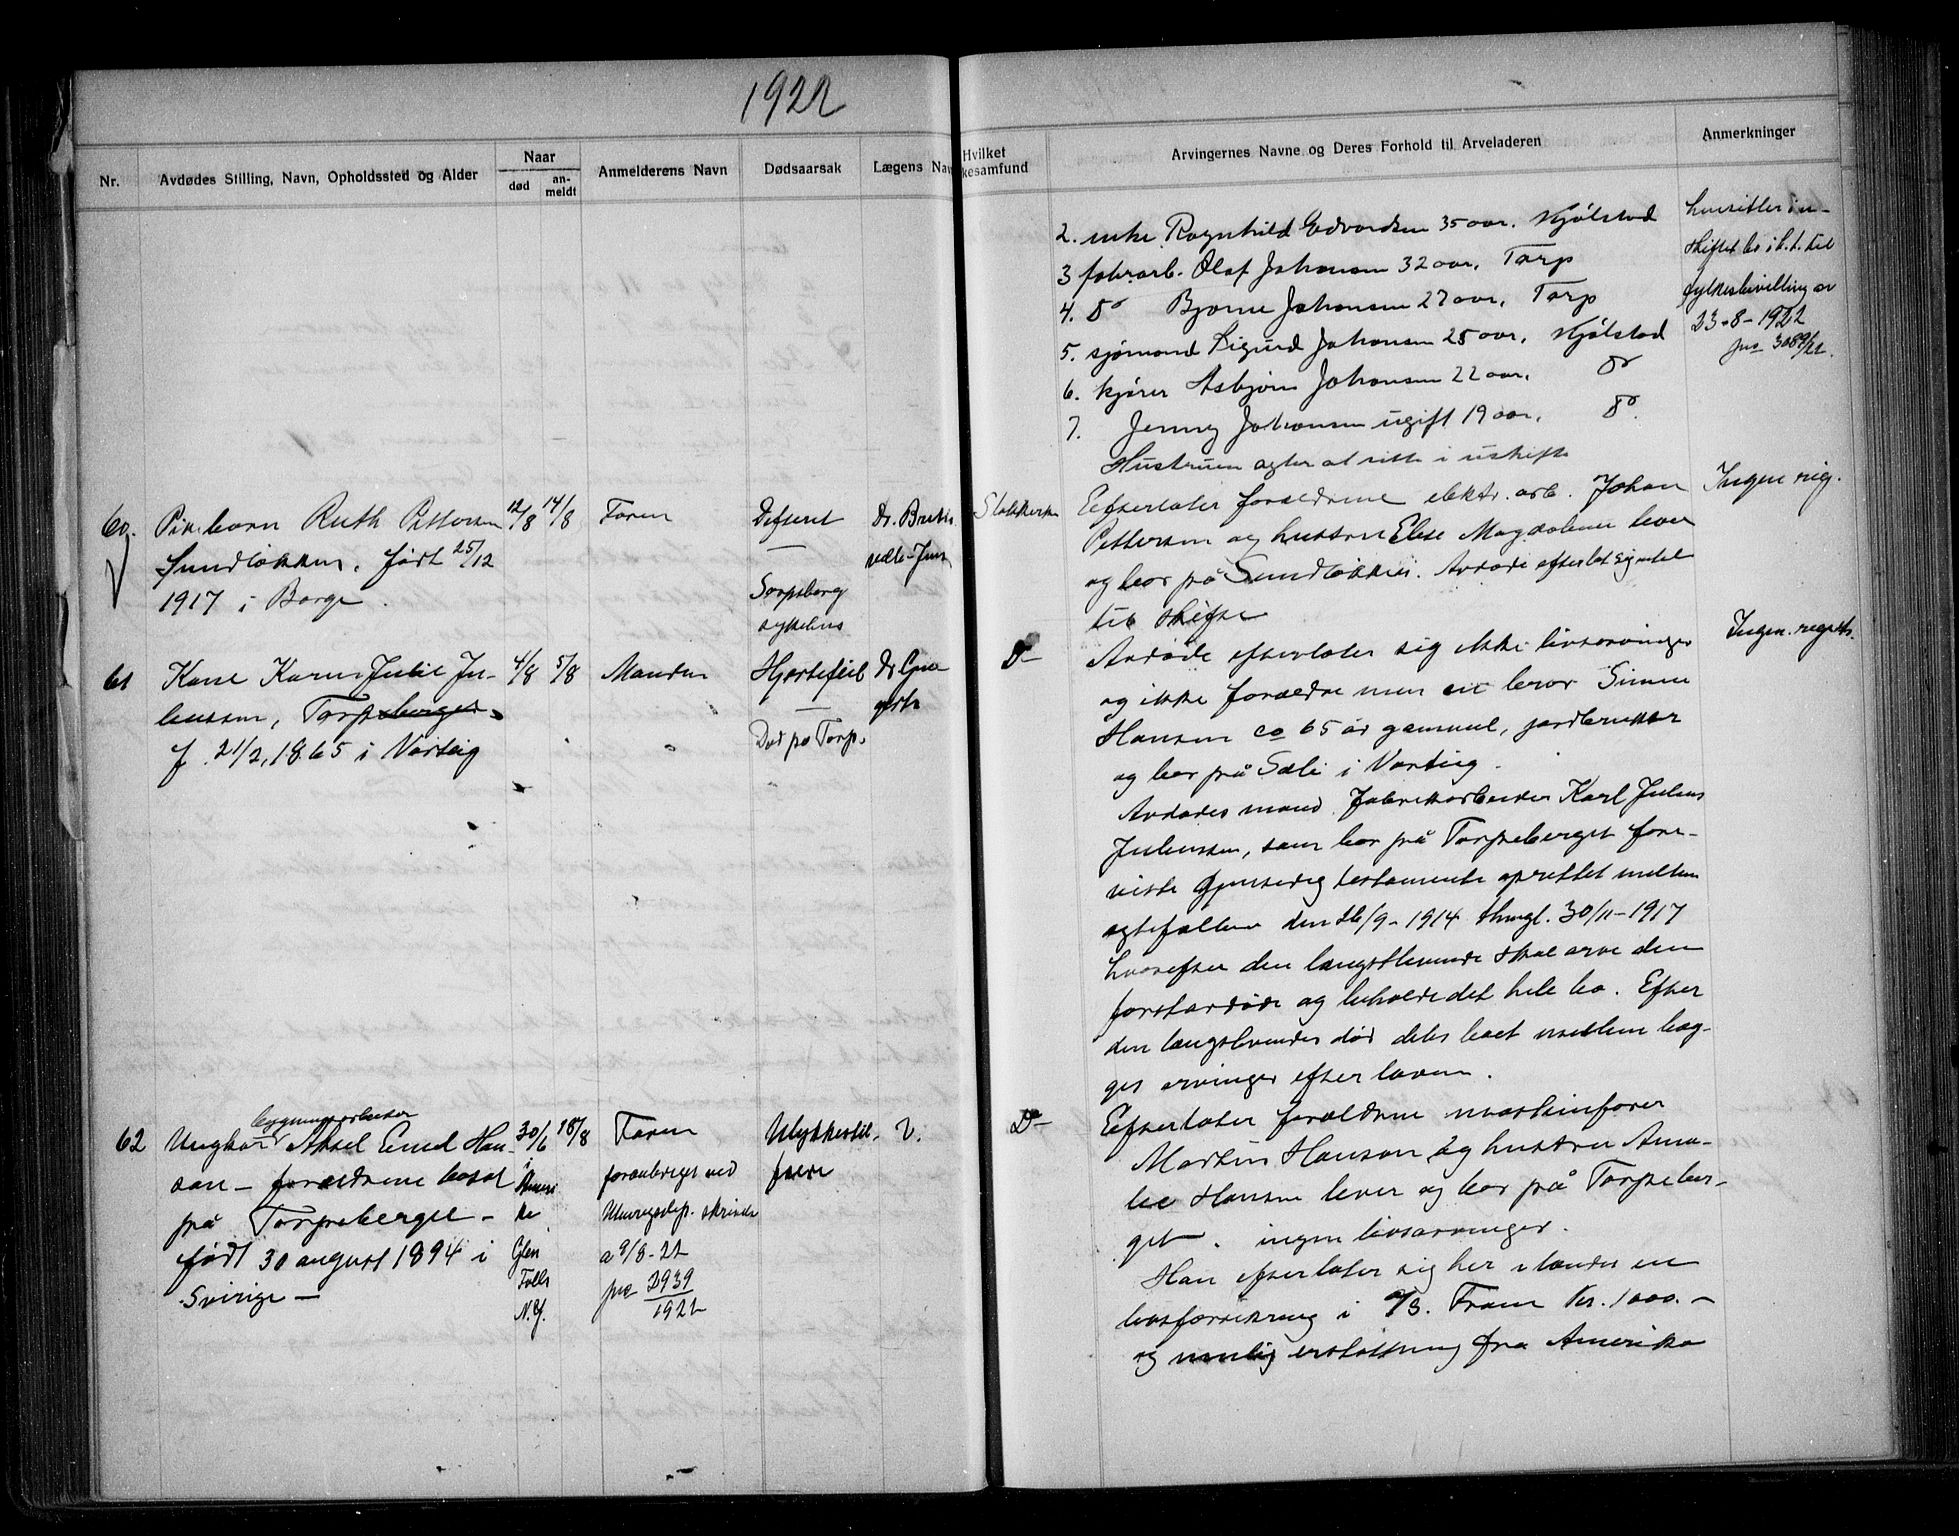 1922
Nr.
Avdødes Stilling, Navn, Opholdssted og Alder
Naar
død
an-
meldt
Anmelderens Navn
Dødsaarsak
Lægens Nav
Hvilket
kesamfund
Arvingernes Navne og Deres Forhold til Arveladeren
Anmerkninger
2. enke Ragnhild Edvardsen 35 aar. Kjølstad
3 fabr.arb. Olaf Johansen 32 aar, Torp
4. do Bjarne Johansen 27 aar, Torp
5. sjømand Sigurd Johansen 25 aar, Kjølstad
6. kjører Asbjørn Johansen 22 aar, do
7. Jenny Johansen ugift 19 aar, do.
Hustruen agter at sitte i uskifte
hensitter i u-
skiftet bo i h.t. til
fylkesbevilling av
23-8-1922
jnr 3089/22.
60.
Pikebarn Ruth Pettersen
Sundløkken, født 25/12
1917 i Borge.
12/8
14/8
Faren
Difterit
Sarpsborg
sykehus
Statskirken
Efterlater forældrene elektr. arb. Johan
Pettersen og hustru Elise Magdalene lever
og bor på Sundløkken. Avdøde efterlot sig intet
til skifte
Ingen reg.
61
Kone Karen Julie Ju-
liussen, Torpeberget.
f. 21/2, 1865 i Varteig
4/8
5/8
Manden
Hjertefeil
Død på Torp.
Do
Avdøde efterlater sig ikke livsarvinger
og ikke forældre men en bror Simen
Hansen ca 65 år gammel, jordbruker
og bor på Sæli i Varteig.
Avdødes mand fabrikarbeider Karl Julius
Juliussen, som bor på Torpeberget fore-
viste gjensidig testamente oprettet mellem
egtefællene den 26/9-1914 thingl. 30/11-1917
hvorefter den længstlevende skal arve den
førstavdøde og beholde det hele bo. Efter
den længstlevendes død deles boet mellem beg-
ges arvinger efter loven.
Ingen registr.
62
bygningsarbeider
Ungkar Aksel Emil Han-
sen – forældrene bosat
på Torpeberget –
født 30 august 1894 i
Sverige –
30/6
i
Ameri
ka
Glen
Falls
N.Y.
18/8
Faren
foranlediget ved
Utenriksdep. skrivelse
a 9/8-22
jnr 2939
1922
Ulykkestil-
fælde
V.
Do
Efterlater forældrene maskinfører
Martin Hansen og hustru Ama-
lie Hansen lever og bor på Torpeber-
get. ingen livsarvinger.
Han efterlater sig her i landet en
livsforsikring i A/S. Fram kr. 1000.–
og mulig erstatning fra Amerika